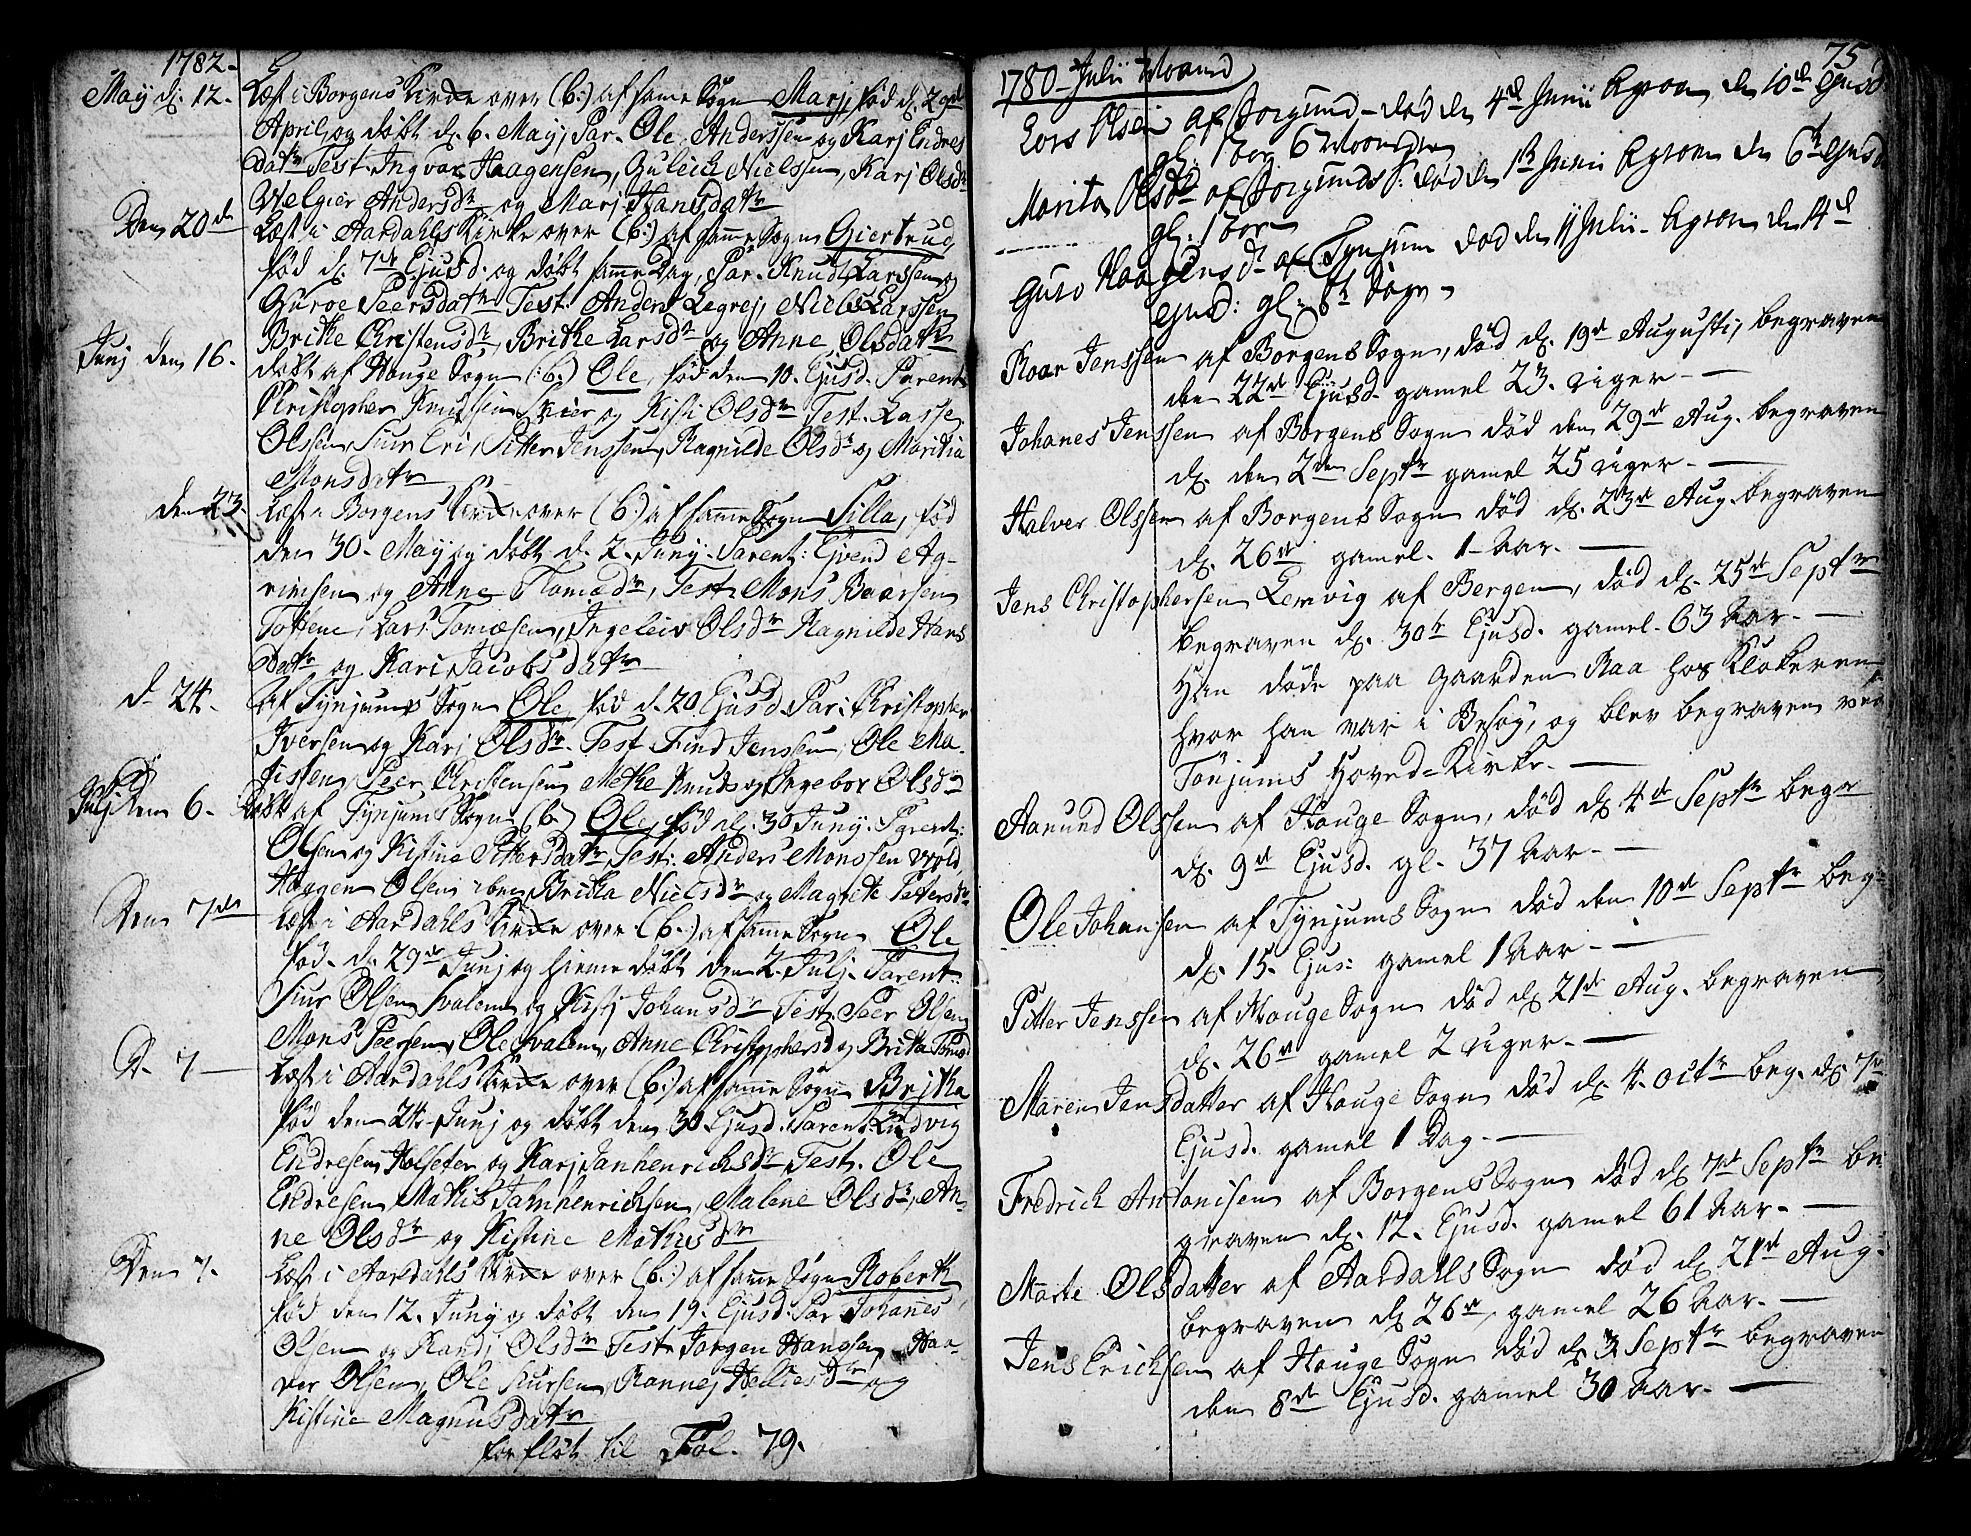 1782.
May d. 12. Læst i Borgens Kirke over (b:) af same Sogn Marj, fød d. 29de
April, og døbt d. 6. Maij, Par. Ole Anderssen og Karj Endres
Datr Test. Ingvar Haagensen, Guleich Nielssen, Karj Olsdr
Velgier Andersdr og Marj Hansdatr
Den 20de Læst i Aardahls Kirke over (b:) af samme Sogn Giertrud
fød d. 7de Ejusd. og døbt samme Dag, Par. Knudt Larssen og
Guroe Peersdatr Test. Anders Legrej, Niels Larssen
Brithe Christensdr, Brithe Larsdr og Anne Olsdatr
Junj den 16. døbt af Houge Sogn (b:) Ole, fød den 10. Ejusd. Parent
Christopher Knutsen og Kisti Olsdr Test. Lasse
Olssen, Siur Eri, Pitter Jenssen, Ragnilde Olsdr og Maritia
Monsdatr
den 23. Læst i Borgens Kirke over (b:) af samme Sogn Silla, fød
den 30. Maij og døbt d. 2. Junij. Parent: Ejvend Ag-
rimsen og Anne Tomædr, Test. Mons Baarsen
Lars Tomæsen, Ingeleiv Olsdr Ragnilde Hans
Datr og Kari Jacobsdatr
d. 24. af Tynjums Sogn Ole fød d. 20 Ejusd. Par: Christopher
Iversen og Karj Olsdr. Test Find Jenssen, Ole Ma-
Peer Christensen, Methe Knuds og Ingebor Olsdr
Julj den 6. Døbt af Tynjums Sogn (b:) Ole, fød d. 30 Junij. Parent:
Olsen og Kistine Pittersdatr, Test: Anders Monssen Vold,
Haagen Olsen ibm, Britha Nielsdr og Magrete Pittersdr
Den 7de Læst i Aardahls Kirke over (b:) af samme Sogn Ole
fød. d. 29de Junj og hiemedøbt den 2. Julj. Parent:
Siur Olsen Svalem og Kistj Johansdr Test. Peer Olsen
Mons Peersen, Ole Svalem, Anne Christophersd og Britha
D. 7 Læst i Aardahls Kirke over (b:) af samme Sogn Britha
fød den 24. Junj og døbt den 30 Ejusd. Parent: Ludvig
Endresen Holseter og Karj Janhenrichsdr Test. Ole
Endresen, Mathis Jahnhenrichsen, Malene Olsdr, An-
ne Olsdr og Kistine Mathisdr
Den 7. Læst i Aardahls Kirke over (b:) af samme Sogn Roberth
fød den 12. Junij og døbt den 19. Ejusd. Par Johanes
Olsen og Randj Olsdr Test. Jørgen Hansen, Haa-
Olsen, Ole Siursen, Ranne, og
Kistine Magnusdatr
forflöt til Fol. 79.
75
1780 Julii Maaned
Lars Olsen af Borgund død den 4de Junii begraven den 10de Ejusd
gl: 1 aar 6 Maaneder
Marita Olsdr af Borgunds S: død den 1te Junii begraven den 6te Ejusd
gl: 1 aar
Guro Haagensdr af Tynjum død den 11 Julii begraven den 14de
Ejusd: gl: 8te Dage
Roar Jenssen af Borgens Sogn, død d. 19de Augusti, begraven
den 22de Ejusd. gamel 23. uger.
Johanes Jenssen af Borgens Sogn død den 29de Aug. begraven
d. den 2den Septr gamel 25 uger.
Halver Olssen af Borgens Sogn død d. 23de Aug. begraven
d. 26de gamel. 1 Aar.
Jens Christophersen Lemvig af Bergen, død d. 25de Septr
begraven d. 30te Ejusd. gamel. 63 Aar.
Han døde paa Gaarden Raa hos Klokeren
hvor han var i Besøg, og blev begraven ved
Tønjums Hoved-Kirke.
Aanund Olssen af Houge Sogn, død d. 4de Septr begr
d. 9de Ejusd. gl. 37 Aar.
Ole Johansen af Tynjums Sogn død den 10de Septr beg:
d. 15. Ejus: gamel 1 Aar.
Pitter Jenssen af Houge Sogn død d. 21de Aug. begraven
d. 26de gamel 2 uger.
Maren Jensdatter af Houge Sogn død d. 4. Octr beg. d. 7de
Ejusd. gamel 1 Dag.
Fredrich Antonisen af Borgens Sogn død d. 7de Septr be
graven d. 12. Ejusd. gamel 61 Aar.
Marte Olsdatter af Aardahls Sogn død d. 21de Aug.
begraven d. 26de gamel 26 Aar.
Jens Erichsen af Houge Sogn død d. 3 Septr begraven
den 8de Ejusd. gamel 30 Aar.